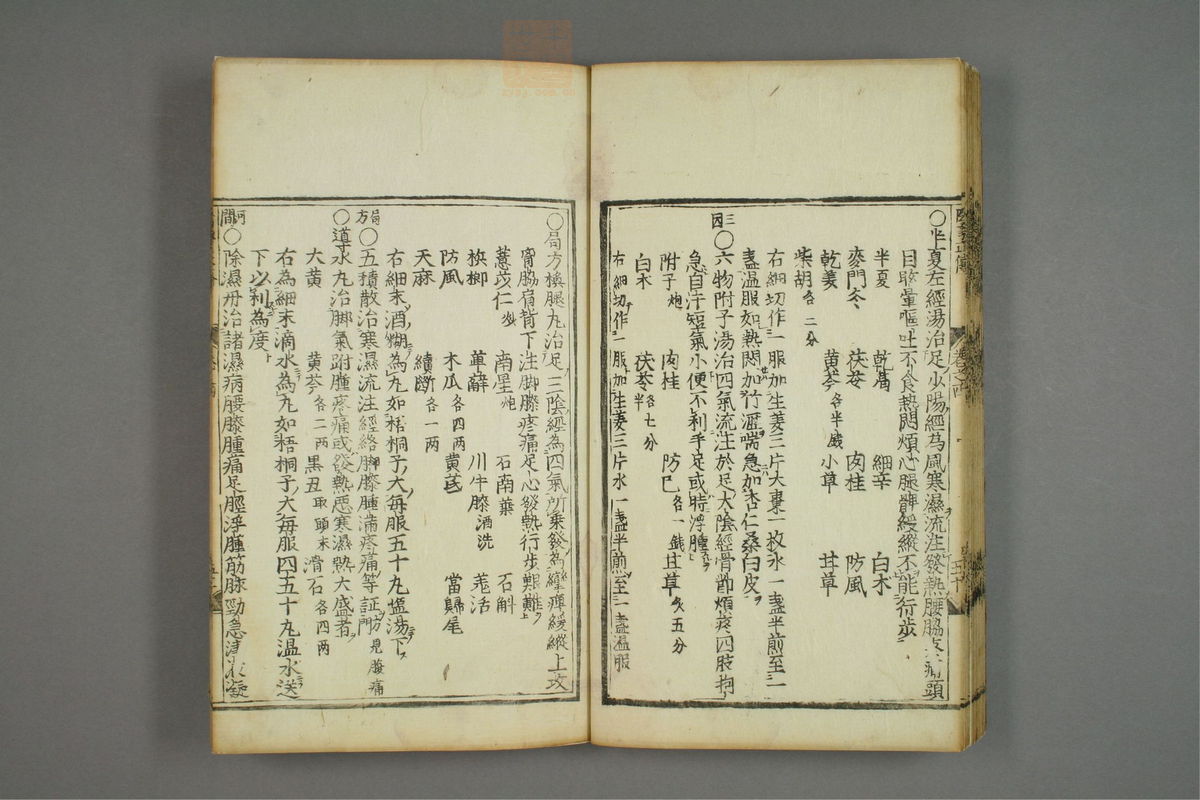 ○半夏左經湯治足少陽經為風寒濕流注發熱腰脇疼痛頭
目眩暈嘔吐不食熱悶煩心腿髀緩縱不能行步
半夏 乾葛 細辛 白朮
麥門冬 茯苓 肉桂 防風
乾姜 黄芩各半戔 小草 甘草
柴胡各二分
右細切作一服加生姜三片大棗一枚水一盞半煎至一
盞溫服如熱悶加竹瀝喘急加杏仁桑白皮
三因○六物附子湯治四氣流注於足太陰經骨節煩疼四肢拘
急自汗短氣小便不利手足或時浮腫
附子炮 肉桂 防已各一錢 甘草炙五分
白朮 茯苓各七分半
右細切作一服加生姜三片水一盞半煎至一盞溫服
○局方換腿丸治足三陰經為四氣所乗發為攣痺緩縱上攻
胷脇肩背下注脚膝疼痛足心發熱行步艱難
薏苡仁炒 南星炮 石南葉 石斛
梹榔 萆薢 川牛膝酒洗 羗活
防風 木瓜各四两 黄芪 當歸尾
天麻 續斷各一两
右細末酒糊為丸如梧桐子大每服五十丸塩湯下
局方○五積散治寒濕流注經絡脚膝腫滿疼痛等証方見腹痛門
○導水丸治脚氣跗腫疼痛或發熱惡寒濕熱大盛者
大黄 黄芩各二两 黒丑取頭末 滑石各四两
右為細末滴水為丸如梧桐子大每服四五十丸温水送
下以利為度
河間○除濕丹治諸濕病腰膝腫痛足脛浮腫筋脉勁急津液凝